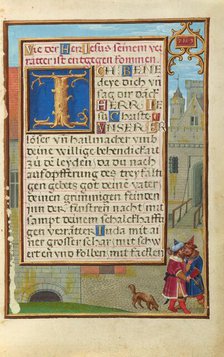 Wie der Her Jesus seinem ver
rätter ist entgegen kommen.
ICH BENE
deye dich vn
sag dir dāck
HERR JE
su Christe
VNSER ER
löser vn hailmacher vnb
deine willige behendickait
zu de leyden da du nach
auffopfferung des treyfalti
gen gebetz deine vatter
deinen grimmigen feinden
inn der finstren nacht mit
sampt deinem schalckhafftigen
verrätter Juda mit ai
ner grosser schar mit schw
erten vnd kolben mit facklen